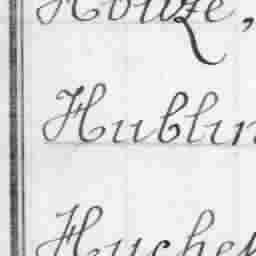 Houze,
Hublin
Huche